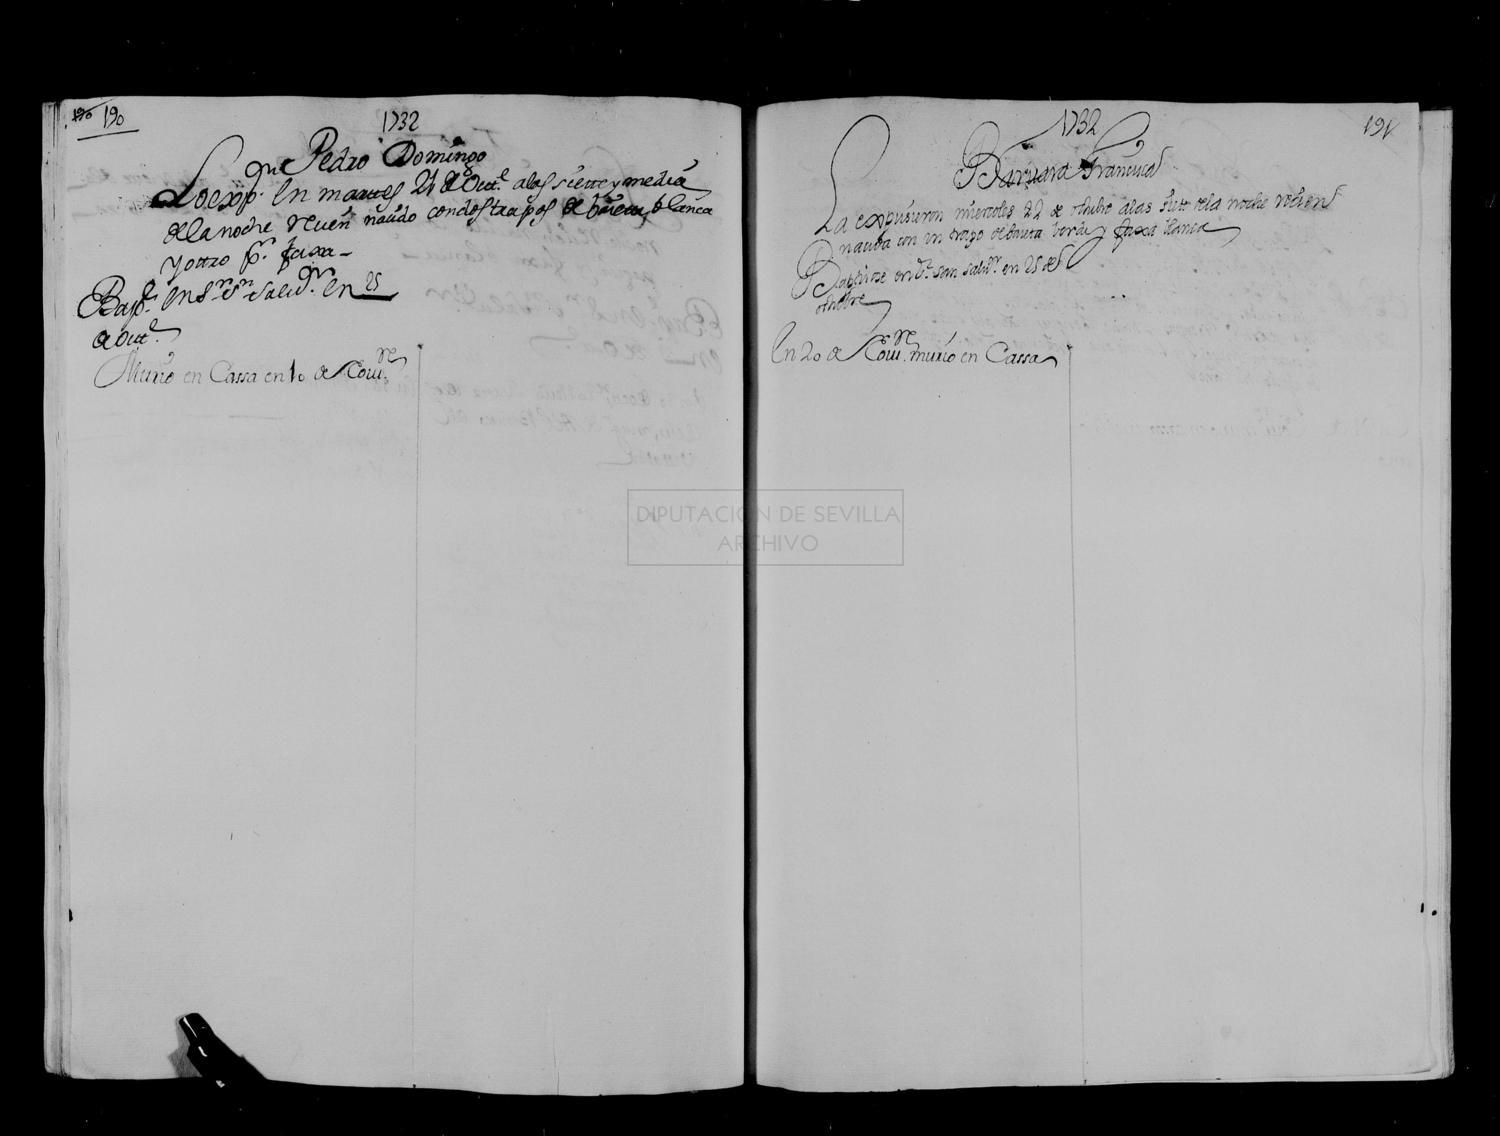 190 190
1732
Pedro Domingo
Lo exp. en martes 21 de Octe. a las siette y media
de la noche recien nacido con dos trapos de baieta blanca
y otro pr. faxa
Bapse. en Sr. Sn. Salvdr. en 25
de Octe.
Murio en Cassa en 10 de Novre.
1732
191
Barvara Francisca
La expusieron miercoles 22 de octubre a las siete de la noche recien
nacida con un trapo de baieta verde y faxa blanca
Baptizose en Sr. San Salvr. en 25 de
octubre
en 20 de Novre. murio en Cassa
DIPUTACIÓN DE SEVILLA
ARCHIVO